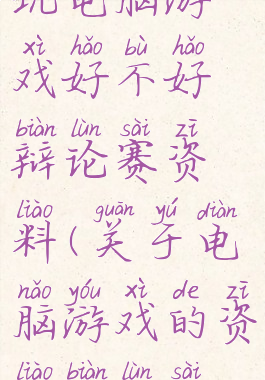 玩电脑游
xì hǎo bù hǎo
戏好不好
biàn lùn sài zī
辩论赛资
liào guān yú diàn
料(关于电
nǎo yóu xì de zī
脑游戏的资
liào biàn lùn sài